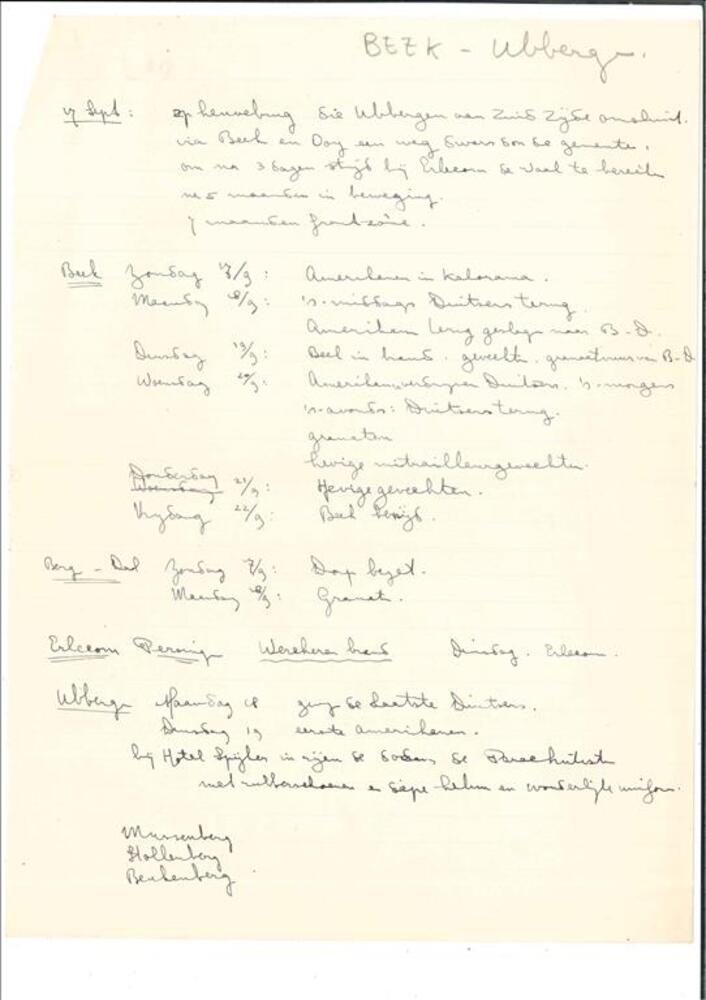 BEEK - Ubbergen.
17 Sept: op heuvelrug die Ubbergen aan Zuid Zijde omsluit.
via Beek en Ooy een weg dwars door de gemeente,
om na 3 dagen strijd bij Erlecom de Waal te bereiken
5 maanden in beweging.
7 maanden frontzone.
Beek Zondag 17/9: Amerikanen in Kalorama.
Maandag 18/9: 's-middags Duitsers terug
Amerikanen terug geslagen naar B-D.
Dinsdag 19/9: Beek in brand. gevechten. granaatvuur van B-D
Woensdag 20/9: Amerikanen verdrijven Duitsers. 's-morgens
's-avonds: Duitsers terug.
granaten
hevige mitrailleurgevechten.
Donderdag 21/9: Hevige gevechten.
Vrijdag 22/9: Beek bevrijd.
Berg - Dal Zondag 17/9: Dorp bezet.
Maandag 18/9: Granaten.
Erlecom Persingen Wercheren brand Dinsdag. Erlecom.
Ubbergen Maandag 18 de laatste Duitsers.
Dinsdag 19 eerste Amerikanen.
bij Hotel Spijker in rijen de Parachutisten
met rubberschoenen en diepe helm en wonderlijke uniform.
Mussenberg
Stollenberg
Beukenberg